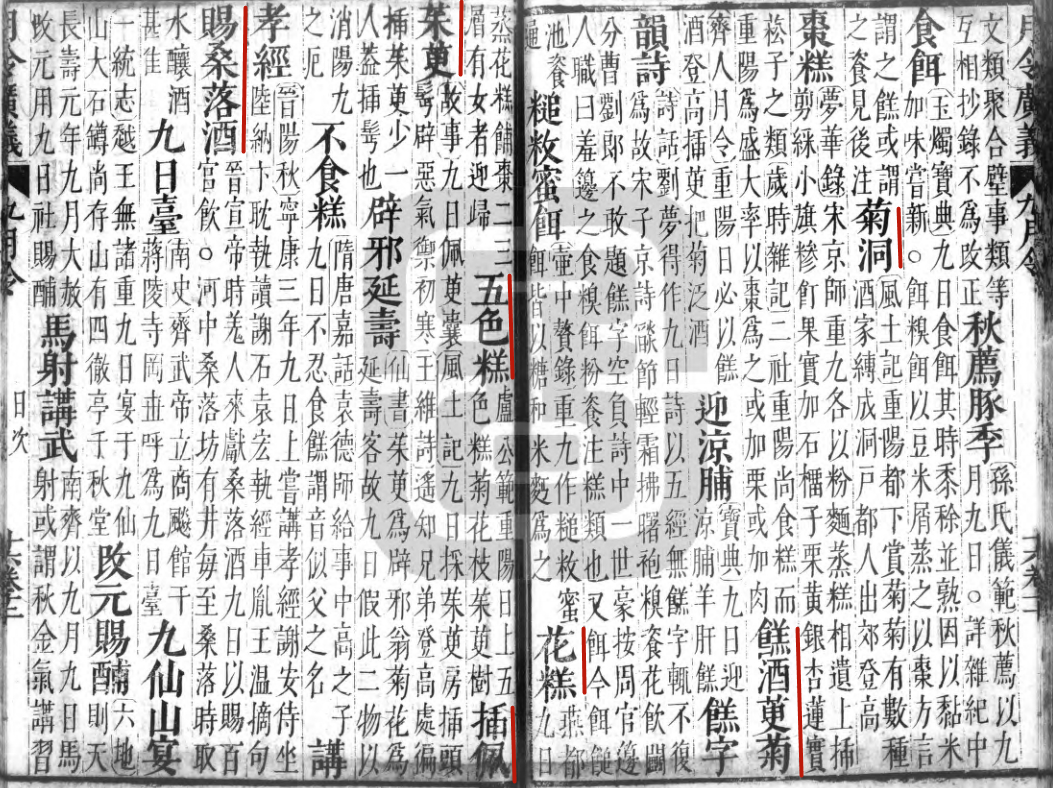 月令廣義 九月令
文類聚合璧事類等
互相抄錄不為改正
秋薦豚季
孫氏儀範秋薦以九
月九日。詳雜紀中
食餌
玉燭寶典九日食餌其時黍秫並熟因以黏米
加味嘗新。餌糗餌以豆米屑蒸之以棗方言
謂之餻或謂
之餈見後注
菊洞
風土記重陽都下賞菊菊有數種
酒家縛成洞戸都人出郊登高
棗糕
夢華錄宋京師重九各以粉麵蒸糕相遺上插
剪綵小旗糝飣果實加石橊子栗黃銀杏蓮實
菘子之類歲時雜記二社重陽尚食糕而
重陽為盛大率以棗為之或加栗或加肉
餻酒萸菊
齊人月令重陽日必以餻
酒登高插萸把菊泛酒
迎涼脯
寶典九日迎
涼脯羊肝餻
餻字
韻詩
詩話劉夢得作九日詩以五經無餻字輒不復
為故宋子京詩飈節輕霜拂曙袍糗餈花飲鬬
分曹劉郎不敢題餻字空負詩中一世豪按周官籩
人職曰羞籩之食糗餌粉餈注糕類也又餌今餌
池餈
槌敉蜜餌
壺中贅錄重九作槌敉蜜
餌皆以糖和米麵為之
花糕
燕都
九日
蒸花糕鋪棗二三
層有女者迎歸
五色糕
盧公範重陽日上五
色糕菊花枝茱萸樹
插佩
茱萸
故事九日佩萸囊風土記九日採茱萸房插頭
髩辟惡氣禦初寒王維詩遙知兄弟登高處徧
插茱萸少一
人蓋插髩也
辟邪延壽
仙書茱萸為辟邪翁菊花為
延壽客故九日假此二物以
消陽九
之厄
不食糕
隋唐嘉話袁德師給事中高之子
九日不忍食餻謂音似父之名
講
孝經
晉陽秋寧康三年九日上嘗講孝經謝安侍坐
陸納卞耽執讀謝石袁宏執經車胤王温摘句
賜桑落酒
晉宣帝時羗人來獻桑落酒九日以賜百
宮飲。河中桑落坊有井每至桑落時取
水釀酒
甚佳
九日臺
南史齊武帝立商飈館于
蔣陵寺岡世呼為九日臺
九仙山宴
一統志越王無諸重九日宴于九仙
山大石罇尚存山有四徹亭千秋堂
改元賜酺
六地
則天
長壽元年九月大赦
改元用九日社賜酺
馬射講武
南齊以九月九日馬
射或謂秋金氣講習
月令廣義 九月令 日次